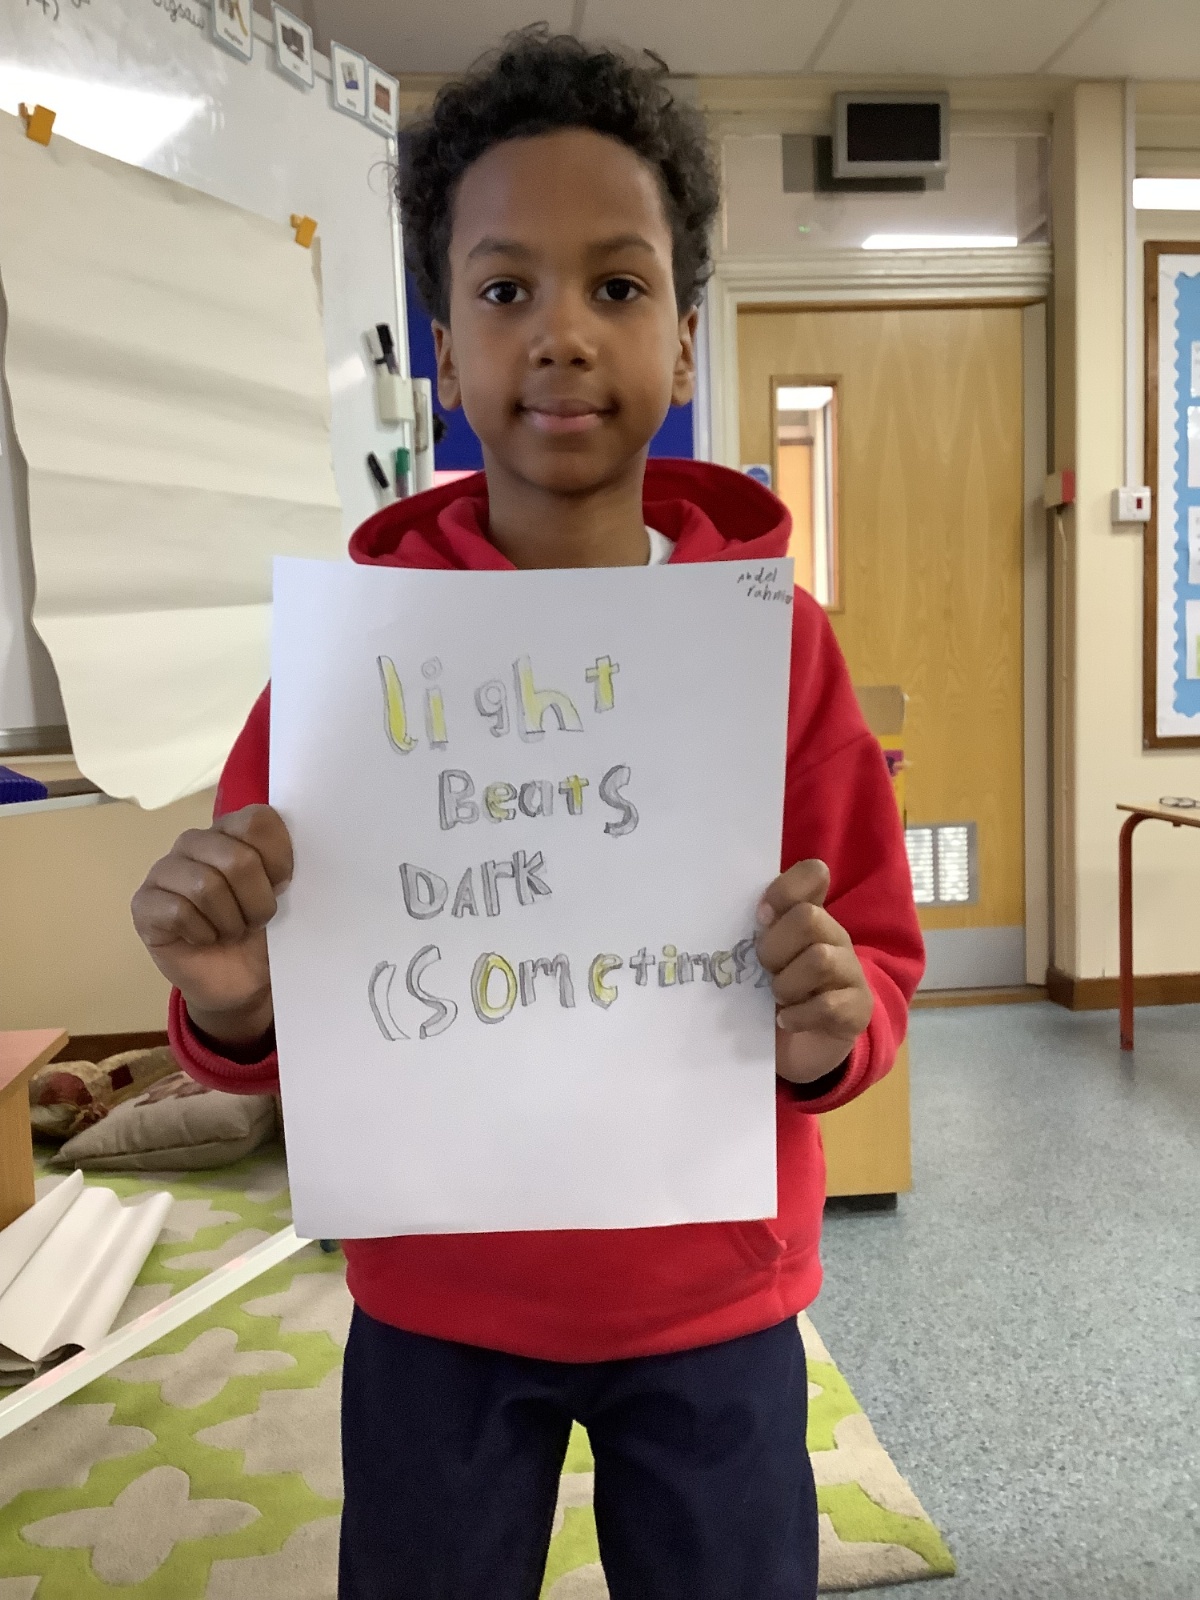 Jigsaw
Abdel
rahman
light
Beats
DArk
(Sometimes)